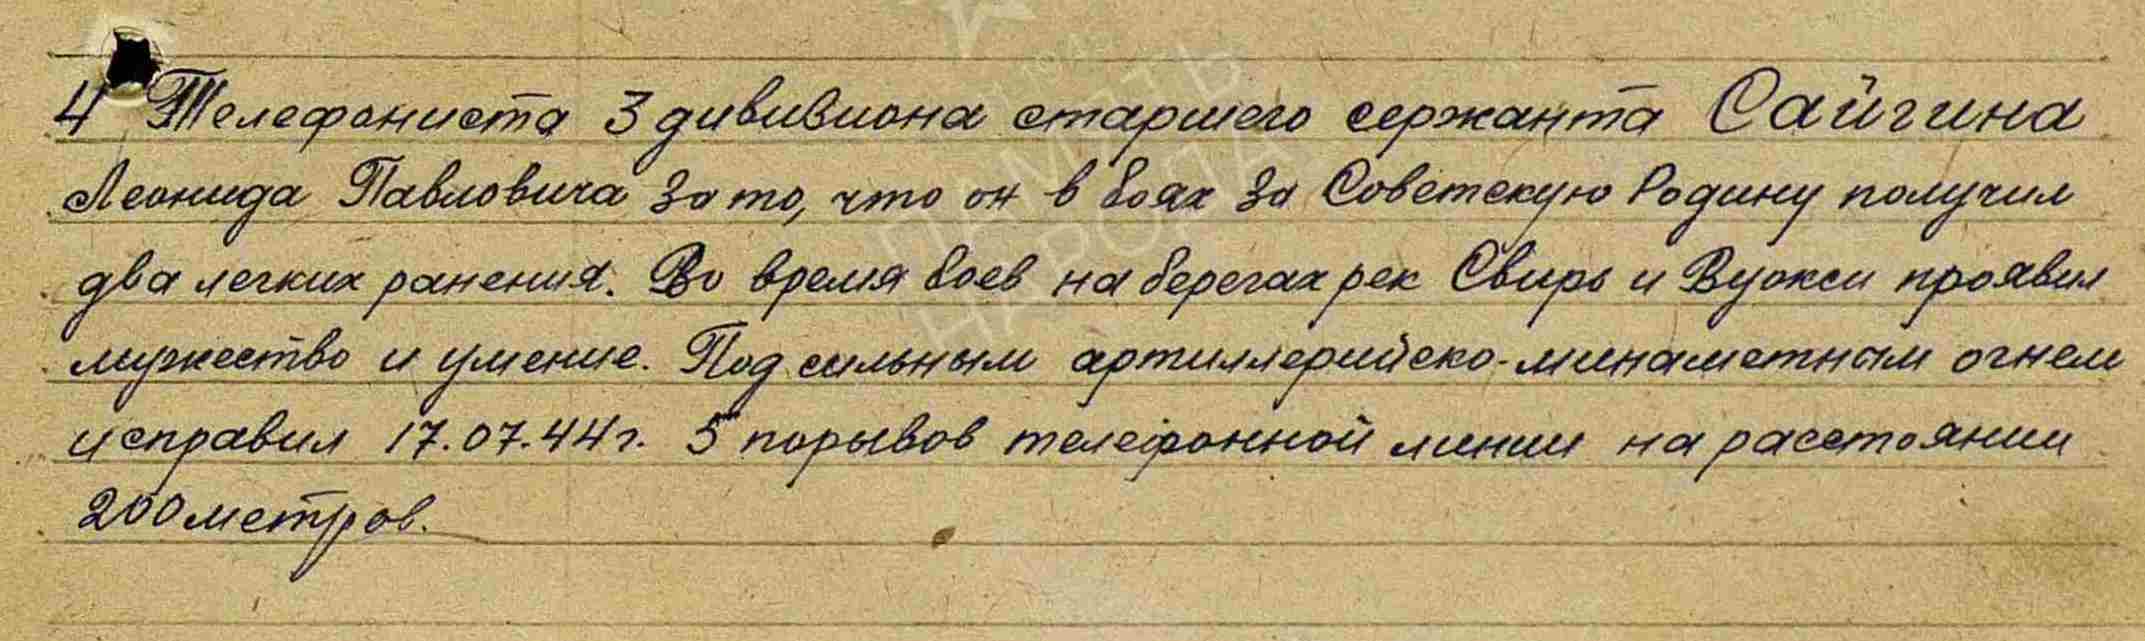 4 Телефониста 3 дивизиона старшего сержанта Сайгина
Леонида Павловича за то, что он в боях за Советскую Родину получил
два легких ранения. Во время боев на берегах рек Свирь и Вуокси проявил
мужество и умение. Под сильным артиллерийско-минометным огнем
исправил 17.07.44г. 5 порывов телефонной линии на расстоянии
200 метров.
ПАМЯТЬ
НАРОДА